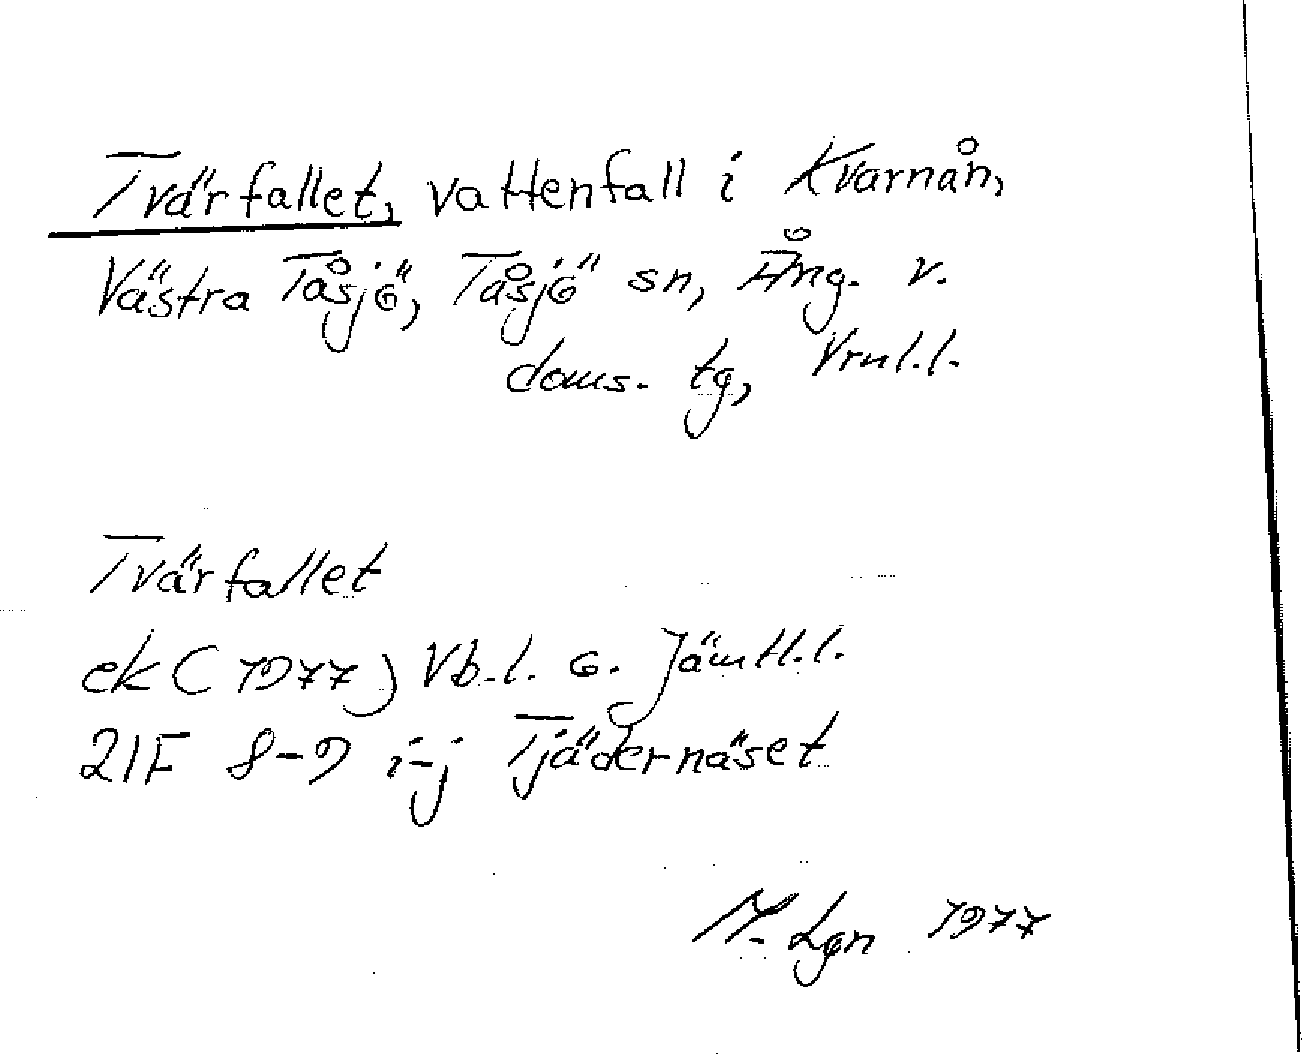 Tvärfallet, vattenfall i Kvarnån,
Västra Tåsjö, Tåsjö sn, Ång. v.
doms. tg, Vrnl.l.
Tvärfallet
ek (1977) Vb.l. o. Jämtl.l.
21F 8-9 i-j Tjädernäset
M. Lgn 1977